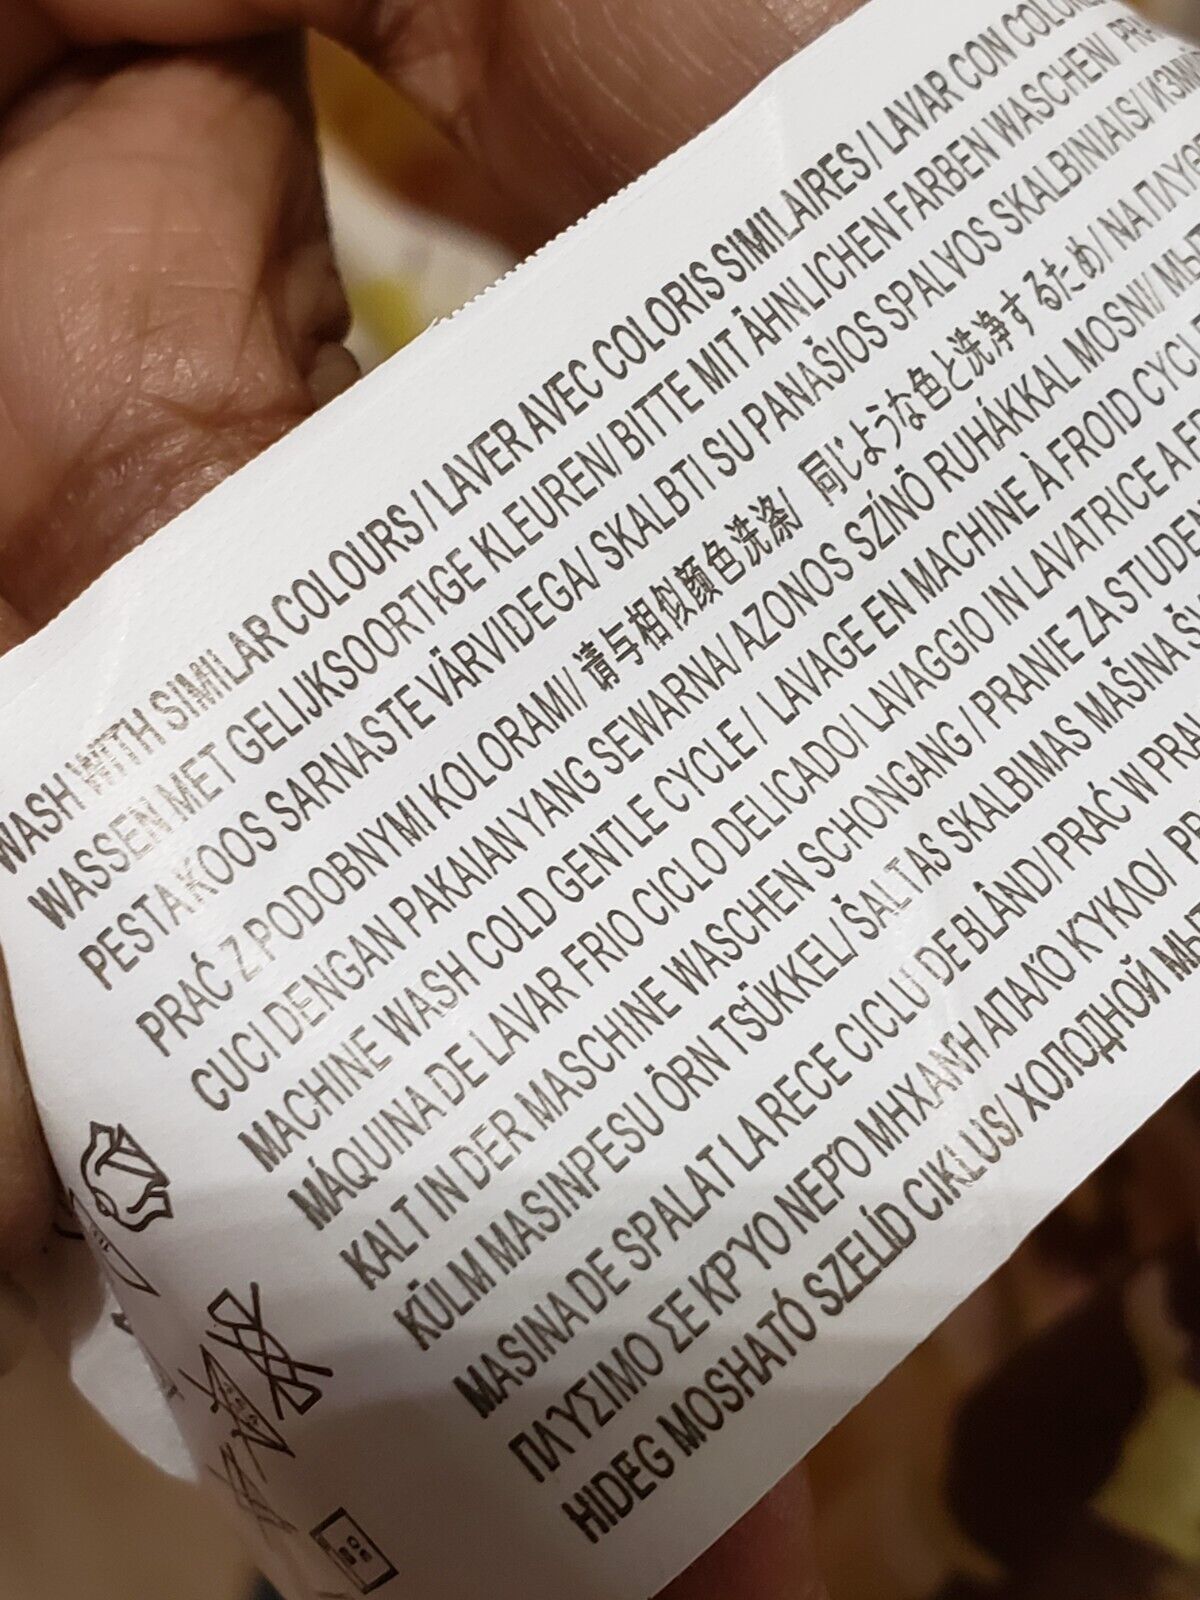 WASH WITH SIMILAR COLOURS / LAVER AVEC COLORIS SIMILAIRES / LAVAR CON
WASSEN MET GELIJKSOORTIGE KLEUREN/ BITTE MIT ÄHNLICHEN FARBEN WASCHEN/
PESTA KOOS SARNASTE VÄRVIDEGA/ SKALBTI SU PANAŠIOS SPALVOS SKALBINIAIS/
PRAĆ Z PODOBNYMI KOLORAMI/ 请与相似颜色洗涤/ 同じような色と洗浄するため/
CUCI DENGAN PAKAIAN YANG SEWARNA/ AZONOS SZÍNÖ RUHÁKKAL MOSNI/
MACHINE WASH COLD GENTLE CYCLE / LAVAGE EN MACHINE À FROID
MÁQUINA DE LAVAR FRIO CICLO DELICADO/ LAVAGGIO IN LAVATRICE A
KALT IN DER MASCHINE WASCHEN SCHONGANG / PRANIE ZA
KÜLM MASINPESU ÖRN TSÜKKEL/ ŠALTAS SKALBIMAS MAŠINA
MASINA DE SPALAT LA RECE CICLU DE BLÂND/ PRAĆ W
ΠΛΎΣΙΜΟ ΣΕ ΚΡΎΟ ΝΕΡΌ ΜΗΧΑΝΉ ΑΠΑΛΌ ΚΎΚΛΟ/
HIDEG MOSHATÓ SZELÍD CIKLUS/ ХОЛОДНОЙ